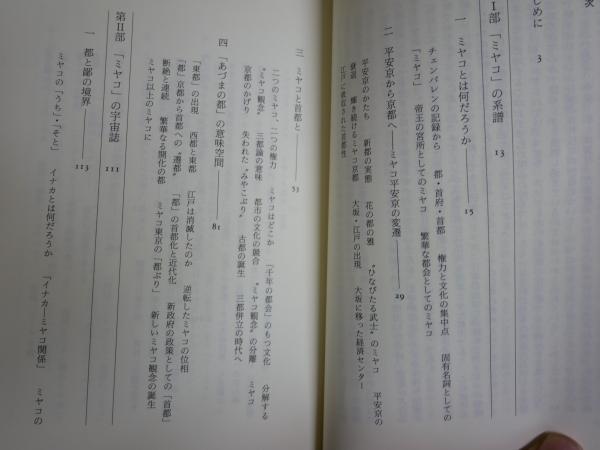 次
じめに 3
I部 「ミヤコ」の系譜 13
一 ミヤコとは何だろうか 15
チェンバレンの記録から 都・首府・首都 権力と文化の集中点 固有名詞としての
「ミヤコ」 帝王の宮所としてのミヤコ 繁華な都会としてのミヤコ
二 平安京から京都へ——ミヤコ平安京の変遷 29
平安京のかたち 新都の実態 花の都の雅 “ひなびたる武士”のミヤコ 平安京の
衰退 輝き続けるミヤコ京都 大坂・江戸の出現 大坂に移った経済センター
江戸に吸収された首都性
三 ミヤコと首都と 53
二つのミヤコ、二つの権力 ミヤコはどこか 「千年の都会」のもつ文化 分解する
“ミヤコ観念” 三都論の意味 都市の文化の競合 “ミヤコ観念”の分離 ミヤコ
京都のかげり 失われた“みやこぶり” 古都の誕生 三都併立の時代へ
四 「あづまの都」の意味空間 81
「東都」の出現 西都と東都 江戸は消滅したのか 逆転したミヤコの位相
「都」京都から首都への“遷都” 「都」の首都化と近代化 新政府の政策としての「首都」
断絶と連続 繁華なる開化の都 ミヤコ東京の「都ぶり」 新しいミヤコ観念の誕生
ミヤコ以上のミヤコに
第II部 「ミヤコ」の宇宙誌 111
一 都と鄙の境界 113
ミヤコの「うち」・「そと」 イナカとは何だろうか 「イナカ—ミヤコ関係」 ミヤコの